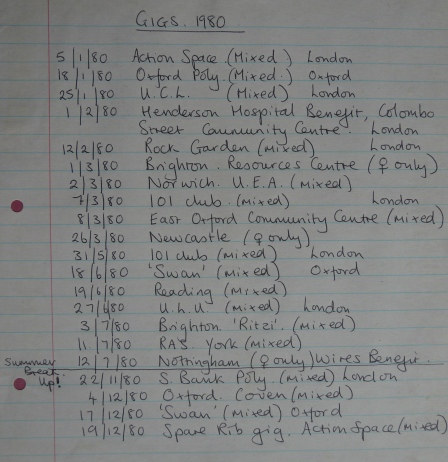 GIGS. 1980
5/1/80 Action Space (Mixed) London
18/1/80 Oxford Poly. (Mixed.) Oxford
25/1/80 U.C.L. (Mixed) London
1/2/80 Henderson Hospital Benefit, Colombo
Street Community Centre. London
12/2/80 Rock Garden (Mixed) London
1/3/80 Brighton. Resources Centre (♀ only)
2/3/80 Norwich. U.E.A. (Mixed)
7/3/80 101 club. (Mixed) London
8/3/80 East Oxford Community Centre (Mixed)
26/3/80 Newcastle (♀ only)
31/5/80 101 club (Mixed) London
18/6/80 'Swan' (Mixed) Oxford
19/6/80 Reading (Mixed)
27/6/80 U.L.U. (Mixed) London
3/7/80 Brighton 'Ritzi'. (Mixed)
11/7/80 York (Mixed)
12/7/80 Nottingham (♀ only) Wires Benefit.
Summer
Break
Up!
22/11/80 S. Bank Poly. (Mixed) London
4/12/80 Oxford. Coven (Mixed)
17/12/80 'Swan' (Mixed) Oxford
19/12/80 Spare Rib gig. Action Space (Mixed)